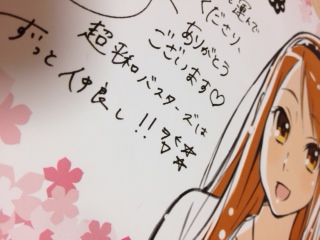 と選んで
ください、
ありがとう
ございます♡
超平和バスターズは
ずっと仲良し!!